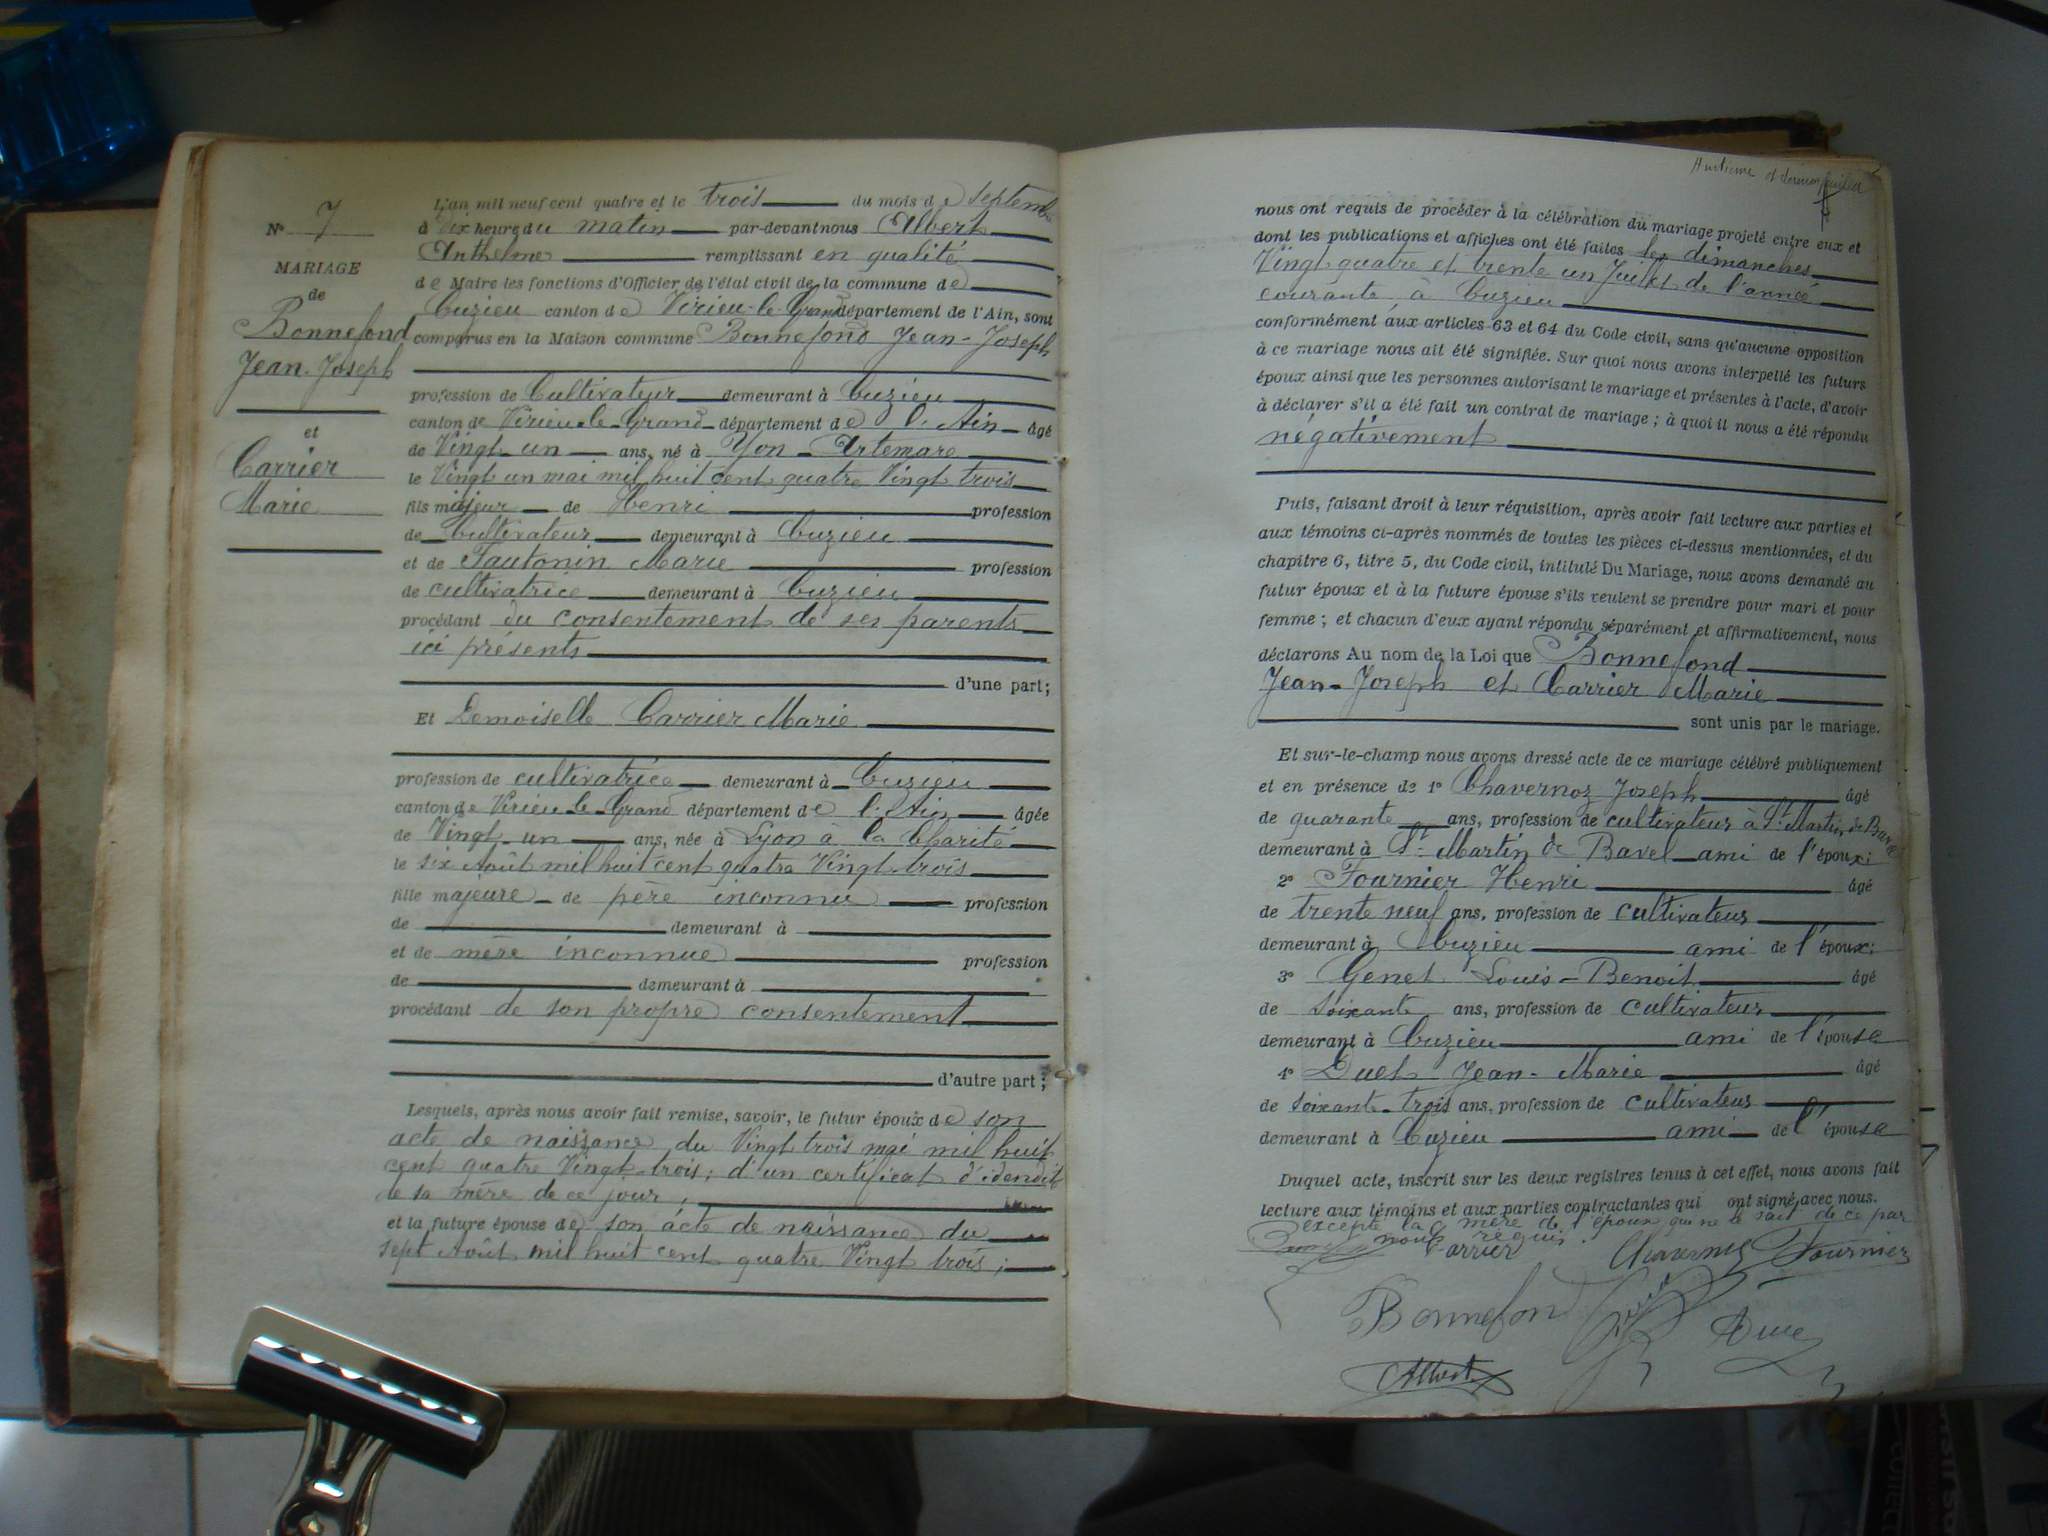 N° 7
MARIAGE
de
Bonnefond
Jean-Joseph
et
Carrier
Marie
L'an mil neuf cent quatre et le trois du mois de septembre
à dix heures du matin par-devant nous Albert
Anthelme remplissant en qualité
de Maire les fonctions d'Officier de l'état civil de la commune de
Cuzieu canton de Virieu-le-Grand département de l'Ain, sont
comparus en la Maison commune Bonnefond Jean-Joseph
profession de Cultivateur demeurant à Cuzieu
canton de Virieu-le-Grand département de l'Ain âgé
de Vingt-un ans, né à Yon-Artemare
le Vingt un mai mil huit cent quatre Vingt trois
fils majeur de Henri profession
de Cultivateur demeurant à Cuzieu
et de Tautonin Marie profession
de cultivatrice demeurant à Cuzieu
procédant du consentement de ses parents
ici présents
d'une part;
Et Demoiselle Carrier Marie
profession de cultivatrice demeurant à Cuzieu
canton de Virieu-le-Grand département de l'Ain âgée
de Vingt-un ans, née à Lyon à la Charité
le six Août mil huit cent quatre Vingt-trois
fille majeure de père inconnu profession
de demeurant à
et de mère inconnue profession
de demeurant à
procédant de son propre consentement
d'autre part;
Lesquels, après nous avoir fait remise, savoir, le futur époux de son
acte de naissance du Vingt trois mai mil huit
cent quatre Vingt-trois; d'un certificat d'idendité
de sa mère de ce jour,
et la future épouse de son acte de naissance du
sept Août mil huit cent quatre Vingt trois;
nous ont requis de procéder à la célébration du mariage projeté entre eux et
dont les publications et affiches ont été faites les dimanches
Vingt quatre et trente un Juillet de l'année
courante, à Cuzieu
conformément aux articles 63 et 64 du Code civil, sans qu'aucune opposition
à ce mariage nous ait été signifiée. Sur quoi nous avons interpellé les futurs
époux ainsi que les personnes autorisant le mariage et présentes à l'acte, d'avoir
à déclarer s'il a été fait un contrat de mariage; à quoi il nous a été répondu
négativement
Puis, faisant droit à leur réquisition, après avoir fait lecture aux parties et
aux témoins ci-après nommés de toutes les pièces ci-dessus mentionnées, et du
chapitre 6, titre 5, du Code civil, intitulé Du Mariage, nous avons demandé au
futur époux et à la future épouse s'ils veulent se prendre pour mari et pour
femme; et chacun d'eux ayant répondu séparément et affirmativement, nous
déclarons Au nom de la Loi que Bonnefond
Jean-Joseph et Carrier Marie
sont unis par le mariage.
Et sur-le-champ nous avons dressé acte de ce mariage célébré publiquement
et en présence de 1° Chavernoz Joseph âgé
de quarante ans, profession de cultivateur à St Martin de Bavel
demeurant à St Martin de Bavel ami de l'époux;
2° Fournier Henri âgé
de trente neuf ans, profession de cultivateur
demeurant à Cuzieu ami de l'époux;
3° Genet Louis-Benoit âgé
de soixante ans, profession de cultivateur
demeurant à Cuzieu ami de l'épouse
4° Duet Jean-Marie âgé
de soixante-trois ans, profession de cultivateur
demeurant à Cuzieu ami de l'épouse
Duquel acte, inscrit sur les deux registres tenus à cet effet, nous avons fait
lecture aux témoins et aux parties contractantes qui ont signé avec nous.
excepté la mère de l'époux qui ne le sait de ce par
nous requis.
Carrier Chavernoz Fournier
Bonnefond Duet
Albert